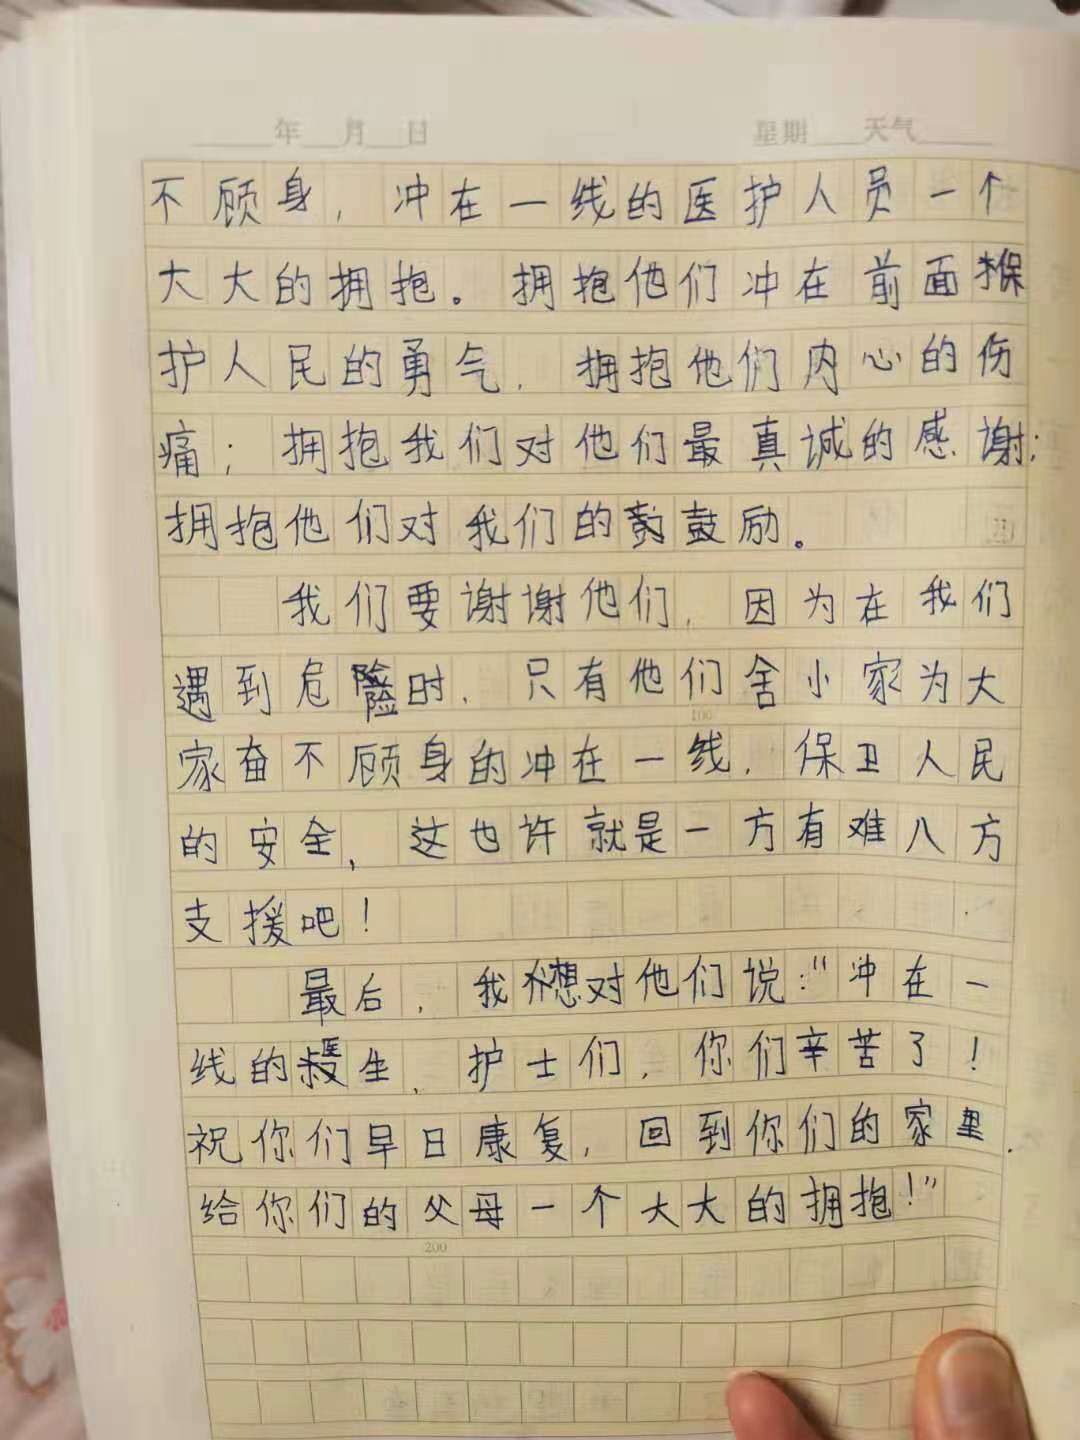 年 月 日 星期 天气
不顾身，冲在一线的医护人员一个
大大的拥抱。拥抱他们冲在前面保
护人民的勇气，拥抱他们内心的伤
痛；拥抱我们对他们最真诚的感谢；
拥抱他们对我们的鼓励。
我们要谢谢他们，因为在我们
遇到危险时，只有他们舍小家为大
家奋不顾身的冲在一线，保卫人民
的安全，这也许就是一方有难八方
支援吧！
最后，我想对他们说：“冲在一
线的医生、护士们，你们辛苦了！
祝你们早日康复，回到你们的家里，
给你们的父母一个大大的拥抱！”
100
200